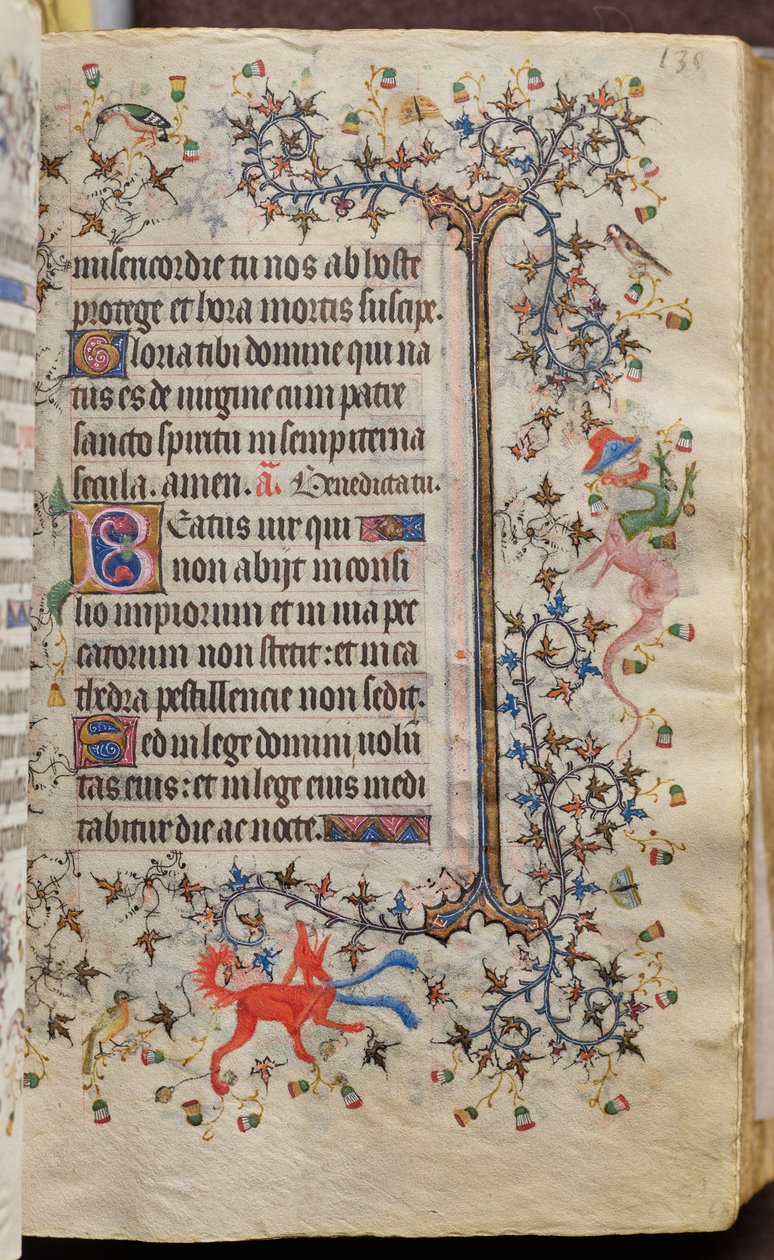 138
misericordie tu nos ab hoste
protege et hora mortis suscipe.
Gloria tibi domine qui na
tus es de uirgine cum patre
sancto spiritu in sempiterna
secula. amen. a͞. Benedicta tu.
Beatus uir qui
non abijt in consi
lio impiorum et in uia pec
catorum non stetit: et in ca
thedra pestillencie non sedit.
Sed in lege domini uolu͞
tas eius: et in lege eius medi
tabitur die ac nocte.